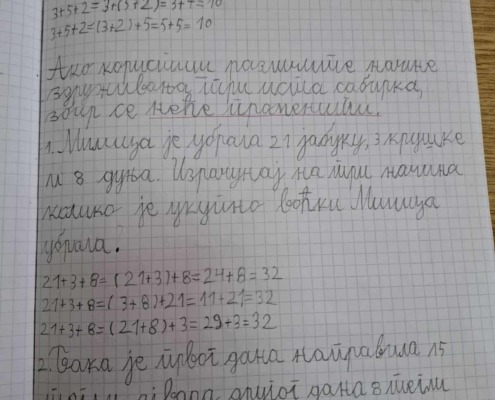 3+5+2=3+(5+2)=3+7=10
3+5+2=(3+2)+5=5+5=10
Ако користиш различите начине
здруживања три иста сабирка,
збир се неће променити.
1. Милица је убрала 21 јабуку, 3 крушке
и 8 дуња. Израчунај на три начина
колико је укупно воћки Милица
убрала.
21+3+8=(21+3)+8=24+8=32
21+3+8=(3+8)+21=11+21=32
21+3+8=(21+8)+3=29+3=32
2. Бака је првог дана направила 15
тегли другог дана 8 тегли